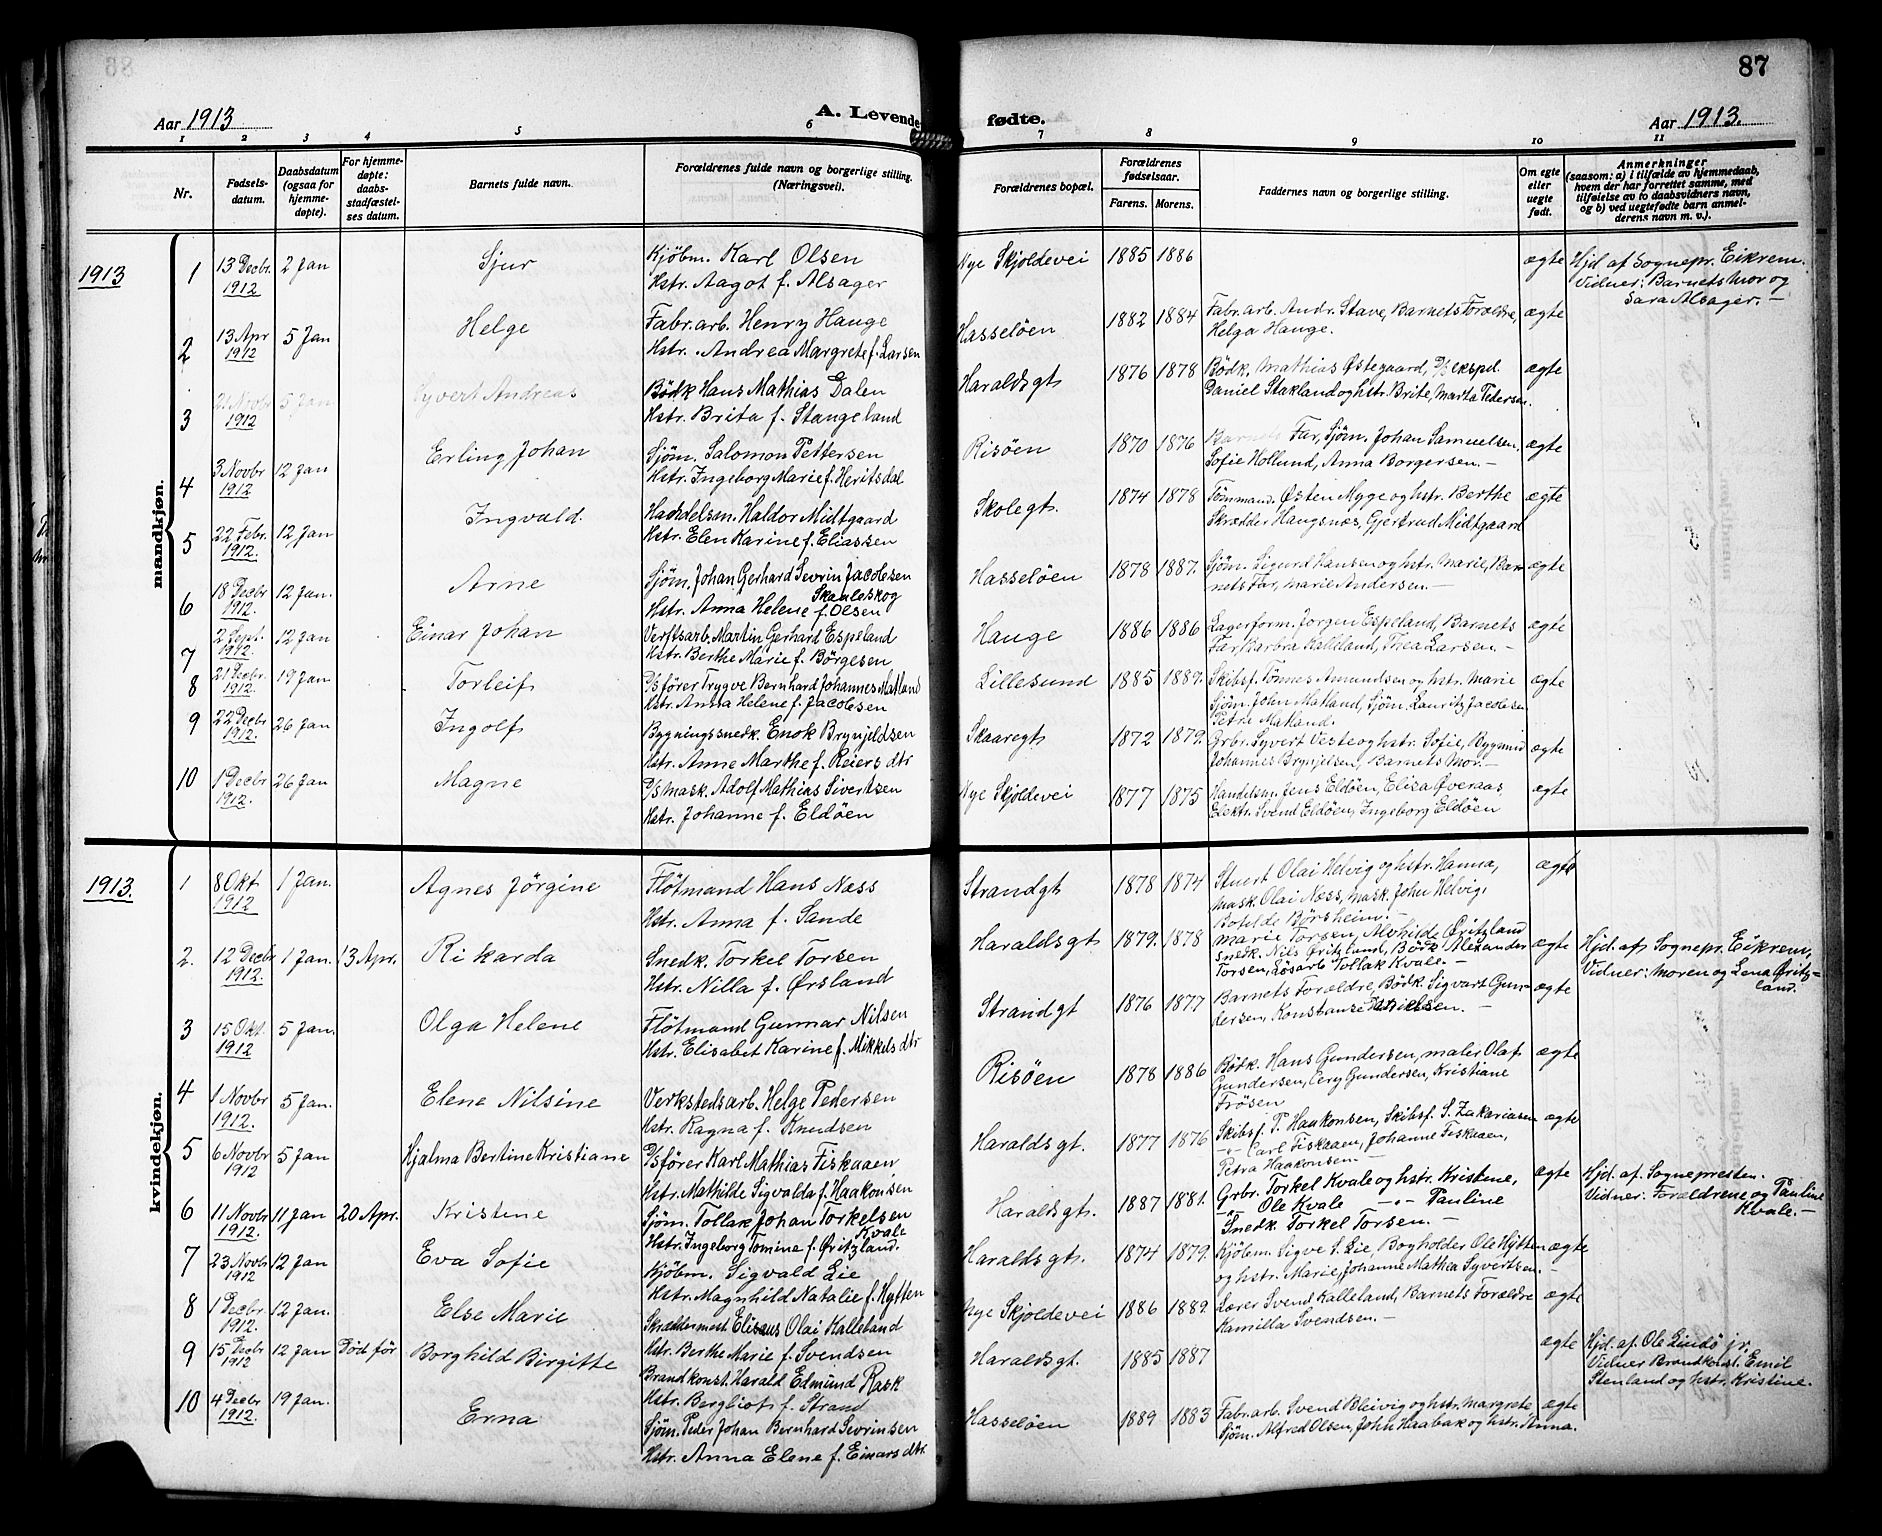 87
Aar 1913
A. Levende fødte.
Aar 1913.
1 2 3 4 5 6 7 8 9 10 11
Nr.
Fødsels-
datum.
Daabsdatum
(ogsaa for
hjemme-
døpte).
For hjemme-
døpte:
daabs-
stadfæstel-
ses datum.
Barnets fulde navn.
Forældrenes fulde navn og borgerlige stilling.
(Næringsvei).
Forældrenes bopæl.
Forældrenes
fødselsaar.
Farens. Morens.
Faddernes navn og borgerlige stilling.
Om egte
eller
uegte
født.
Anmerkninger
(saasom: a) i tilfælde av hjemmedaab,
hvem der har forrettet samme, med
tilføielse av to daabsvidners navn,
og b) ved uegtefødte barn anmel-
derens navn m. v.).
mandkjøn.
1913
1 13 Decbr. 1912 2 Jan Sjur
Kjöbm. Karl Olsen
Hstr. Aagot f. Alsager
Nye Skjoldevei 1885 1886 ægte
Hjd af Sognepr. Eikrem.
Vidner: Barnets Mor og
Sara Alsager. —
2 13 Apr 1912 5 Jan Helge
Fabr. arb. Henry Hauge
Hstr. Andrea Margrete f. Larsen
Hasseløen 1882 1884
Fabr. arb. Andr. Stave, Barnets Forældre,
Helga Hauge.
ægte
3 21 Novbr 1912 5 Jan Syvert Andreas
Bødk Hans Mathias Dalen
Hstr. Brita f. Stangeland
Haraldsgt 1876 1878
Bödk. Mathias Østegaard, D/S ekspd.
Daniel Stakland og hstr. Brite, Marta Pedersen.
ægte
4 3 Novbr 1912 12 Jan Erling Johan
Sjöm. Salomon Pettersen
Hstr. Ingeborg Marie f. Heritsdal
Risöen 1870 1876
Barnets Far, Sjöm. Johan Samuelsen,
Sofie Hollund, Anna Borgersen. —
ægte
5 22 Febr. 1912. 12 Jan Ingvald.
Handelsm. Haldor Midtgaard
Hstr. Elen Karine f. Eliassen
Skolegt. 1874 1878
Tömmand. Østen Myge og hstr. Berthe
Skrædder Haugsnæs, Gjertrud Midtgaard
ægte
6 18 Decbr 1912. 12 Jan. Arne
Sjöm. Johan Gerhard Sevrin Jacobsen
Skaaldskog
Hstr. Anna Helene f. Olsen
Hasselöen 1878 1887.
Sjöm. Sigurd Hansen og hstr. Marie, Bar-
nets Far, Marie Andersen. —
ægte
7 2 Sept. 1912. 12 Jan Einar Johan
Verftsarb. Martin Gerhard Espeland
Hstr. Berthe Marie f. Börgesen
Hauge 1886 1886
Lagerform. Jorgen Espeland, Barnets
Far, Barbra Kalleland, Thea Larsen. —
ægte
8 21 Decbr. 1912. 19 Jan Torleif
D/S förer Trygve Bernhard Johannes Matland
Hstr. Anna Helene f. Jacobsen
Lillesund 1885 1889.
Skibsf. Tönnes Amundsen og hstr. Marie
Sjöm. John Matland, Sjöm. Lauritz Jacobsen
Petra Matland.
ægte
9 22 Decbr 1912. 26 Jan Ingolf
Bygningssnedk. Enok Brynjeldsen
Hstr. Anne Marthe f. Reiers dtr
Skaaregt 1872 1879.
Grbr. Syvert Veste og hstr. Sofie, Bygsmed
Johannes Brynjelsen, Barnets Mor. —
ægte
10 1 Decbr 1912. 26 Jan Magne
D/S mask. Adolf Mathias Sivertsen
Hstr. Johanne f. Eldöen
Nye Skjoldevei 1877 1875
Handelsm. Jens Eldöen, Elisa Øveraas
Elektr. Svend Eldöen, Ingeborg Eldöen
ægte
kvindekjøn.
1913.
1 8 Okt 1912 1 Jan. Agnes Jörgine
Flötmand Hans Næss
Hstr. Anna f. Sande
Strandgt 1878 1874
Stuert Olai Helvig og hstr. Hanna,
Mask. Olai Næss, Mask. John Helvig,
Botilde Börsheim. —
ægte
2. 12 Decbr 1912. 1 Jan. 13 Apr. Rikarda
Snedk. Torkel Torsen
Hstr. Nilla f. Ørsland
Haraldsgt 1879. 1878
Marie Torsen, Alvhilde Øritzland
Snedk. Nils Øritzland, Bödk Alexander
Torsen, Lösarb Tollak Kvale. —
ægte
Hjd. af Sognepr. Eikrem,
Vidner: Moren og Lena Øritz-
land.
3 15 Okt. 1912 5 Jan. Olga Helene
Flötmand Gunnar Nilsen
Hstr. Elisabet Karine f. Mikkels dtr
Strandgt 1876 1877
Barnets Forældre, Bödk. Sigvart Gun-
dersen, Konstanze Danielsen. —
ægte
4 1 Novbr 1912. 5 Jan. Elene Nilsine
Verkstedsarb. Helge Pedersen
Hstr. Ragna f. Knudsen
Risöen 1878 1886
Bödk. Hans Gundersen, maler Olaf
Gundersen, Cery Gundersen, Kristiane
Frösen
ægte
5 6 Novbr 1912 5 Jan Hjalma Bertine Kristiane
D/S förer Karl Mathias Fiskaaen
Hstr. Mathilde Sigvalda f. Haakonsen
Haraldsgt. 1877 1876
Skibsf. P. Haakonsen, Skibsf. S. Zakariasen
—"— Carl Fiskaaen, Johanne Fiskaaen,
Petra Haakonsen —
ægte
6 11 Novbr 1912. 11 Jan 20 Apr. Kristene
Sjöm. Tollak Johan Torkelsen
Kvale
Hstr. Ingeborg Tomine f. Øritzland.
Haraldsgt. 1887 1881.
Grbr. Torkel Kvale og hstr. Kristene,
—"— Ole Kvale —"— Pauline
Snedk Torkel Torsen. —
ægte
Hjd. af. Sognepresten.
Vidner: Forældrene og Pauline
Kvale. —
7 23 Novbr 1912 12 Jan Eva Sofie
Kjöbm. Sigvald Lie
Hstr. Magnhild Natalie f. Hytten
Haraldsgt. 1874 1879.
Kjöbm. Sigve S. Lie, Bogholder Ole Hytten
og hstr. Marie, Johanne Mathea Syvertsen. —
ægte
8 1 Decbr 1912. 12 Jan. Else Marie
Skræddermest. Elisæus Olai Kalleland
Hstr. Berthe Marie f. Svendsen
Nye Skjoldevei 1886 1889.
Lærer Svend Kalleland, Barnets Forældre
Kamilla Svendsen. —
ægte
9 15 Decbr 1912 12 Jan Död för Borghild Birgitte
Brandkonst. Harald Edmund Rask
Hstr. Bergliot f. Strand
Haraldsgt. 1885 1887 ægte
Hjd. af. Ole Lindö jr.
Vidner Brandkonst. Emil
Stenland og hstr. Kristine.
10 4 Decbr 1912. 19 Jan. Erna
Sjöm. Peder Johan Bernhard Sevrinsen
Hstr. Anna Elene f. Einars dtr
Hasselöen 1889 1883
Fabr. arb. Svend Bleivig og hstr. Margrete
Sjöm. Alfred Olsen, John Haabak og hstr. Anna.
ægte